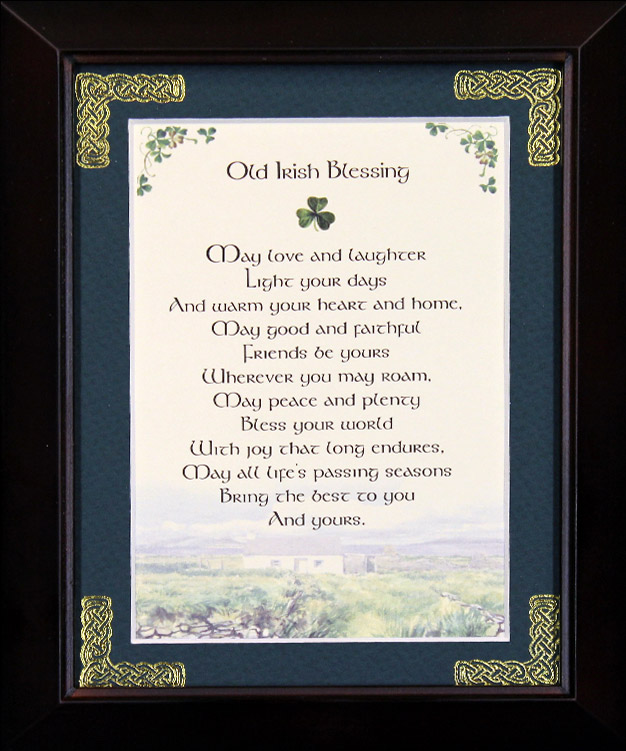 Old Irish Blessing
May love and laughter
Light your days
And warm your heart and home,
May good and faithful
Friends be yours
Wherever you may roam,
May peace and plenty
Bless your world
With joy that long endures,
May all life's passing seasons
Bring the best to you
And yours.